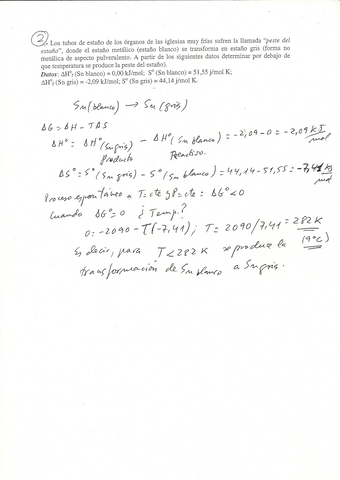 2
Los tubos de estaño de los órganos de las iglesias muy frías sufren la llamada "peste del
estaño", donde el estaño metálico (estaño blanco) se transforma en estaño gris (forma no
metálica de aspecto pulverulento. A partir de los siguientes datos determinar por debajo de
que temperatura se produce la peste del estaño).
Datos: ΔH°f (Sn blanco) = 0,00 kJ/mol; S° (Sn blanco) = 51,55 j/mol K;
ΔH°f (Sn gris) = -2,09 kJ/mol; S° (Sn gris) = 44,14 j/mol K.
Sn(blanco) → Sn(gris)
ΔG = ΔH - TΔS
ΔH° = ΔH°(Sn gris) - ΔH°(Sn blanco) = -2,09 - 0 = -2,09 kJ/mol
Producto Reactivo.
ΔS° = S°(Sn gris) - S°(Sn blanco) = 44,14 - 51,55 = -7,41 /mol
Proceso espontáneo a T=cte y P=cte: ΔG° < 0
Cuando ΔG° = 0 ¿Temp.?
0 = -2090 - T(-7,41); T = 2090/7,41 = 282 K
(9°C)
Es decir, para T < 282 K se produce la
transformación de Sn blanco a Sn gris.